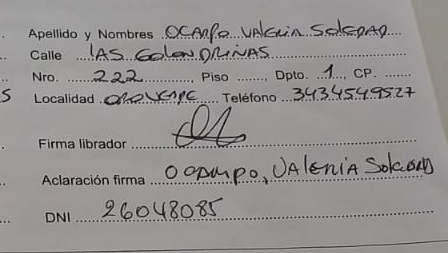 Apellido y Nombres OCAMPO VALERIA SOLEDAD
Calle LAS GOLONDRINAS
Nro. 222 Piso Dpto. 1 CP.
Localidad Teléfono 3434549527
Firma librador
Aclaración firma OCAMPO, VALERIA SOLEDAD
DNI 26048085